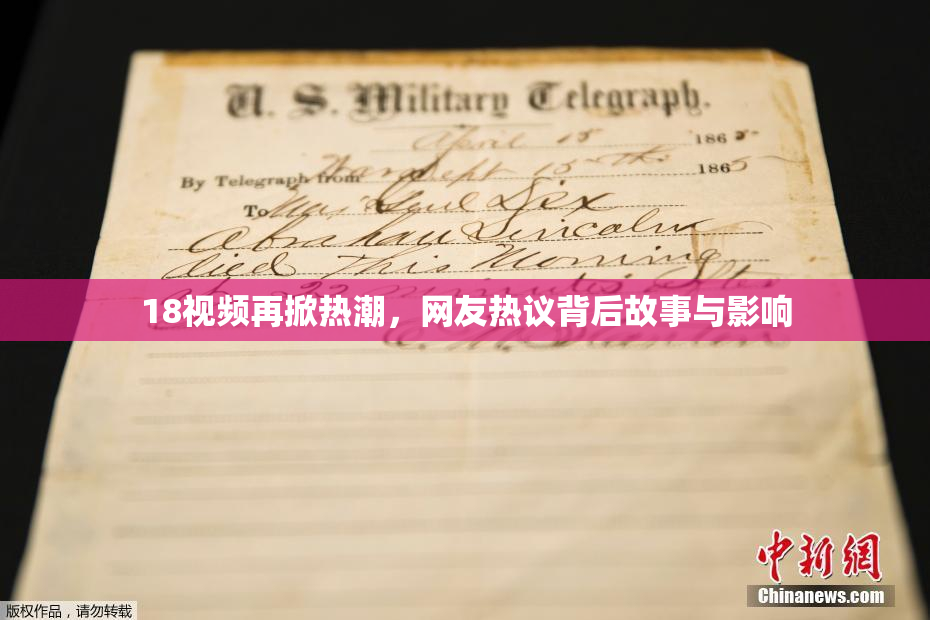 U. S. Military Telegraph.
April 15 1865
By Telegraph from War Dept 15th 1865
To Maj Genl Dix
Abraham Lincoln
died This Morning
22 minutes after
18视频再掀热潮，网友热议背后故事与影响
E. M. Stanton
中新网
Chinanews.com
版权作品，请勿转载